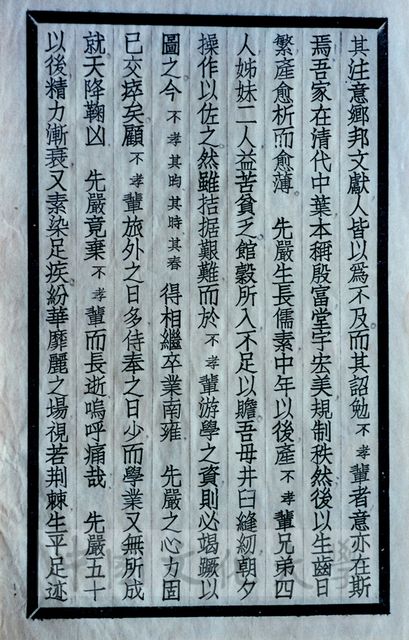 其注意鄉邦文獻人皆以為不及而其詔勉不孝輩者意亦在斯
焉吾家在清代中葉本稱殷富堂宇宏美規制秩然後以生齒日
繁產愈析而愈薄　先嚴生長儒素中年以後產不孝輩兄弟四
人姊妹二人益苦貧乏館穀所入不足以贍吾母井臼縫紉朝夕
操作以佐之然雖拮据艱難而於不孝輩游學之資則必竭蹶以
圖之今不孝其昀其時其春得相繼卒業南雍　先嚴之心力固
已交瘁矣顧不孝輩旅外之日多侍奉之日少而學業又無所成
就天降鞠凶　先嚴竟棄不孝輩而長逝嗚呼痛哉　先嚴五十
以後精力漸衰又素染足疾紛華靡麗之場視若荆棘生平足迹